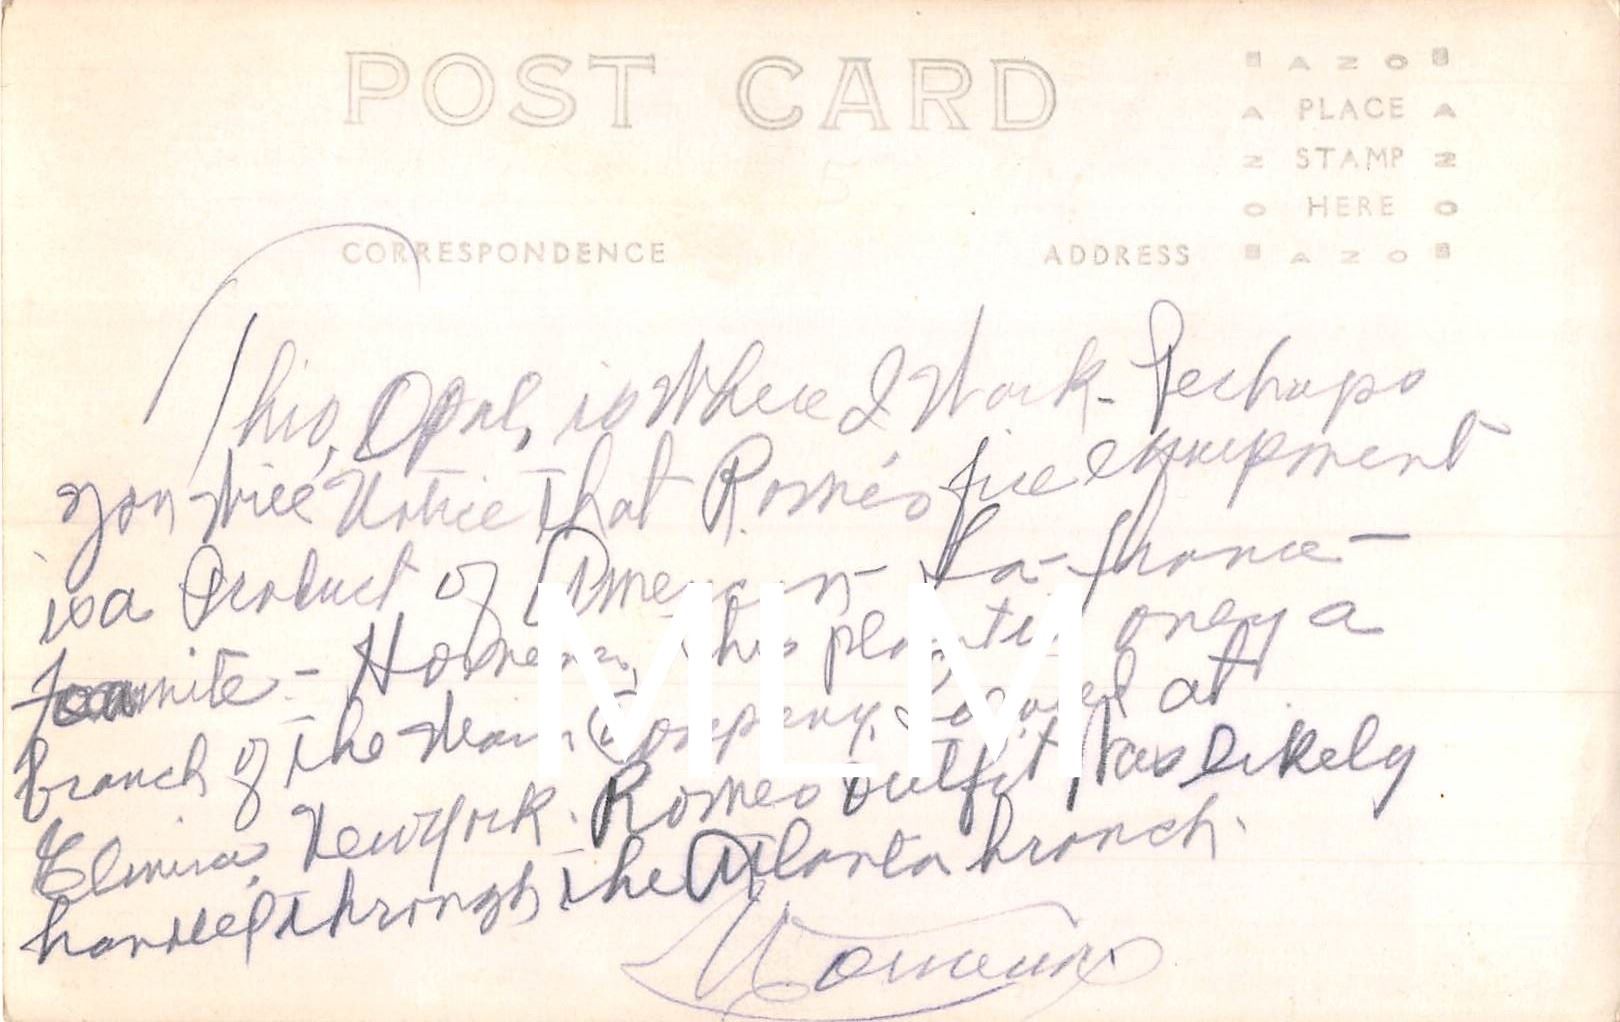 POST CARD
AZO
PLACE
STAMP
HERE
AZO
CORRESPONDENCE ADDRESS
This, Opal, is Where I Work - Perhaps
you will Notice that Rome's fire equipment
is a Product of American - La - france -
foamite - However, this plant is only a
branch of the Main Company, Located at
Elmira, New York. Romes outfit, was Likely
handled through the Atlanta branch.
MLM